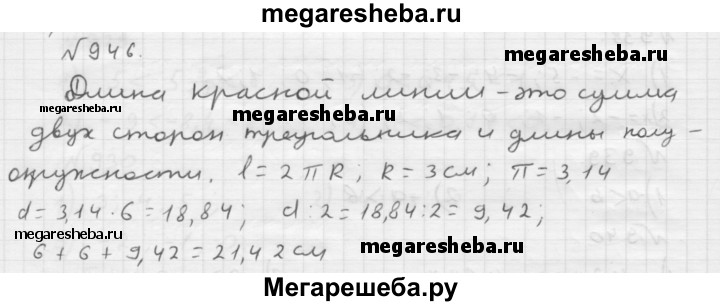 megaresheba.ru
№946.
megaresheba.ru
Длина красной линии - это сумма
megaresheba.ru
megaresheba.ru
двух сторон треугольника и длины полу-
окружности. l = 2πR; R = 3см; π = 3,14
d = 3,14 · 6 = 18,84; d : 2 = 18,84 : 2 = 9,42;
megaresheba.ru
megaresheba.ru
6 + 6 + 9,42 = 21,42 см
Мегарешеба.ру